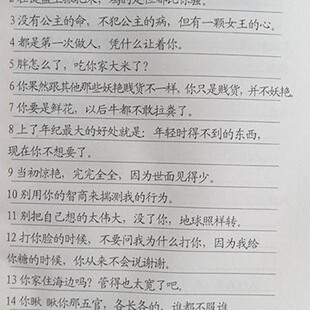 3 没有公主的命，不犯公主的病，但有一颗女王的心。
4 都是第一次做人，凭什么让着你。
5 胖怎么了，吃你家大米了？
6 你果然跟其他那些妖艳贱货不一样，你只是贱货，并不妖艳。
7 你要是鲜花，以后牛都不敢拉粪了。
8 上了年纪最大的好处就是：年轻时得不到的东西，
现在你不想要了。
9 当初惊艳，完完全全，因为世面见得少。
10 别用你的智商来揣测我的行为。
11 别把自己想的太伟大，没了你，地球照样转。
12 打你脸的时候，不要问我为什么打你，因为我给
你糖的时候，你从来不会说谢谢。
13 你家住海边吗？管得也太宽了吧。
14 你瞅 瞅你那五官，各长各的，谁都不服谁